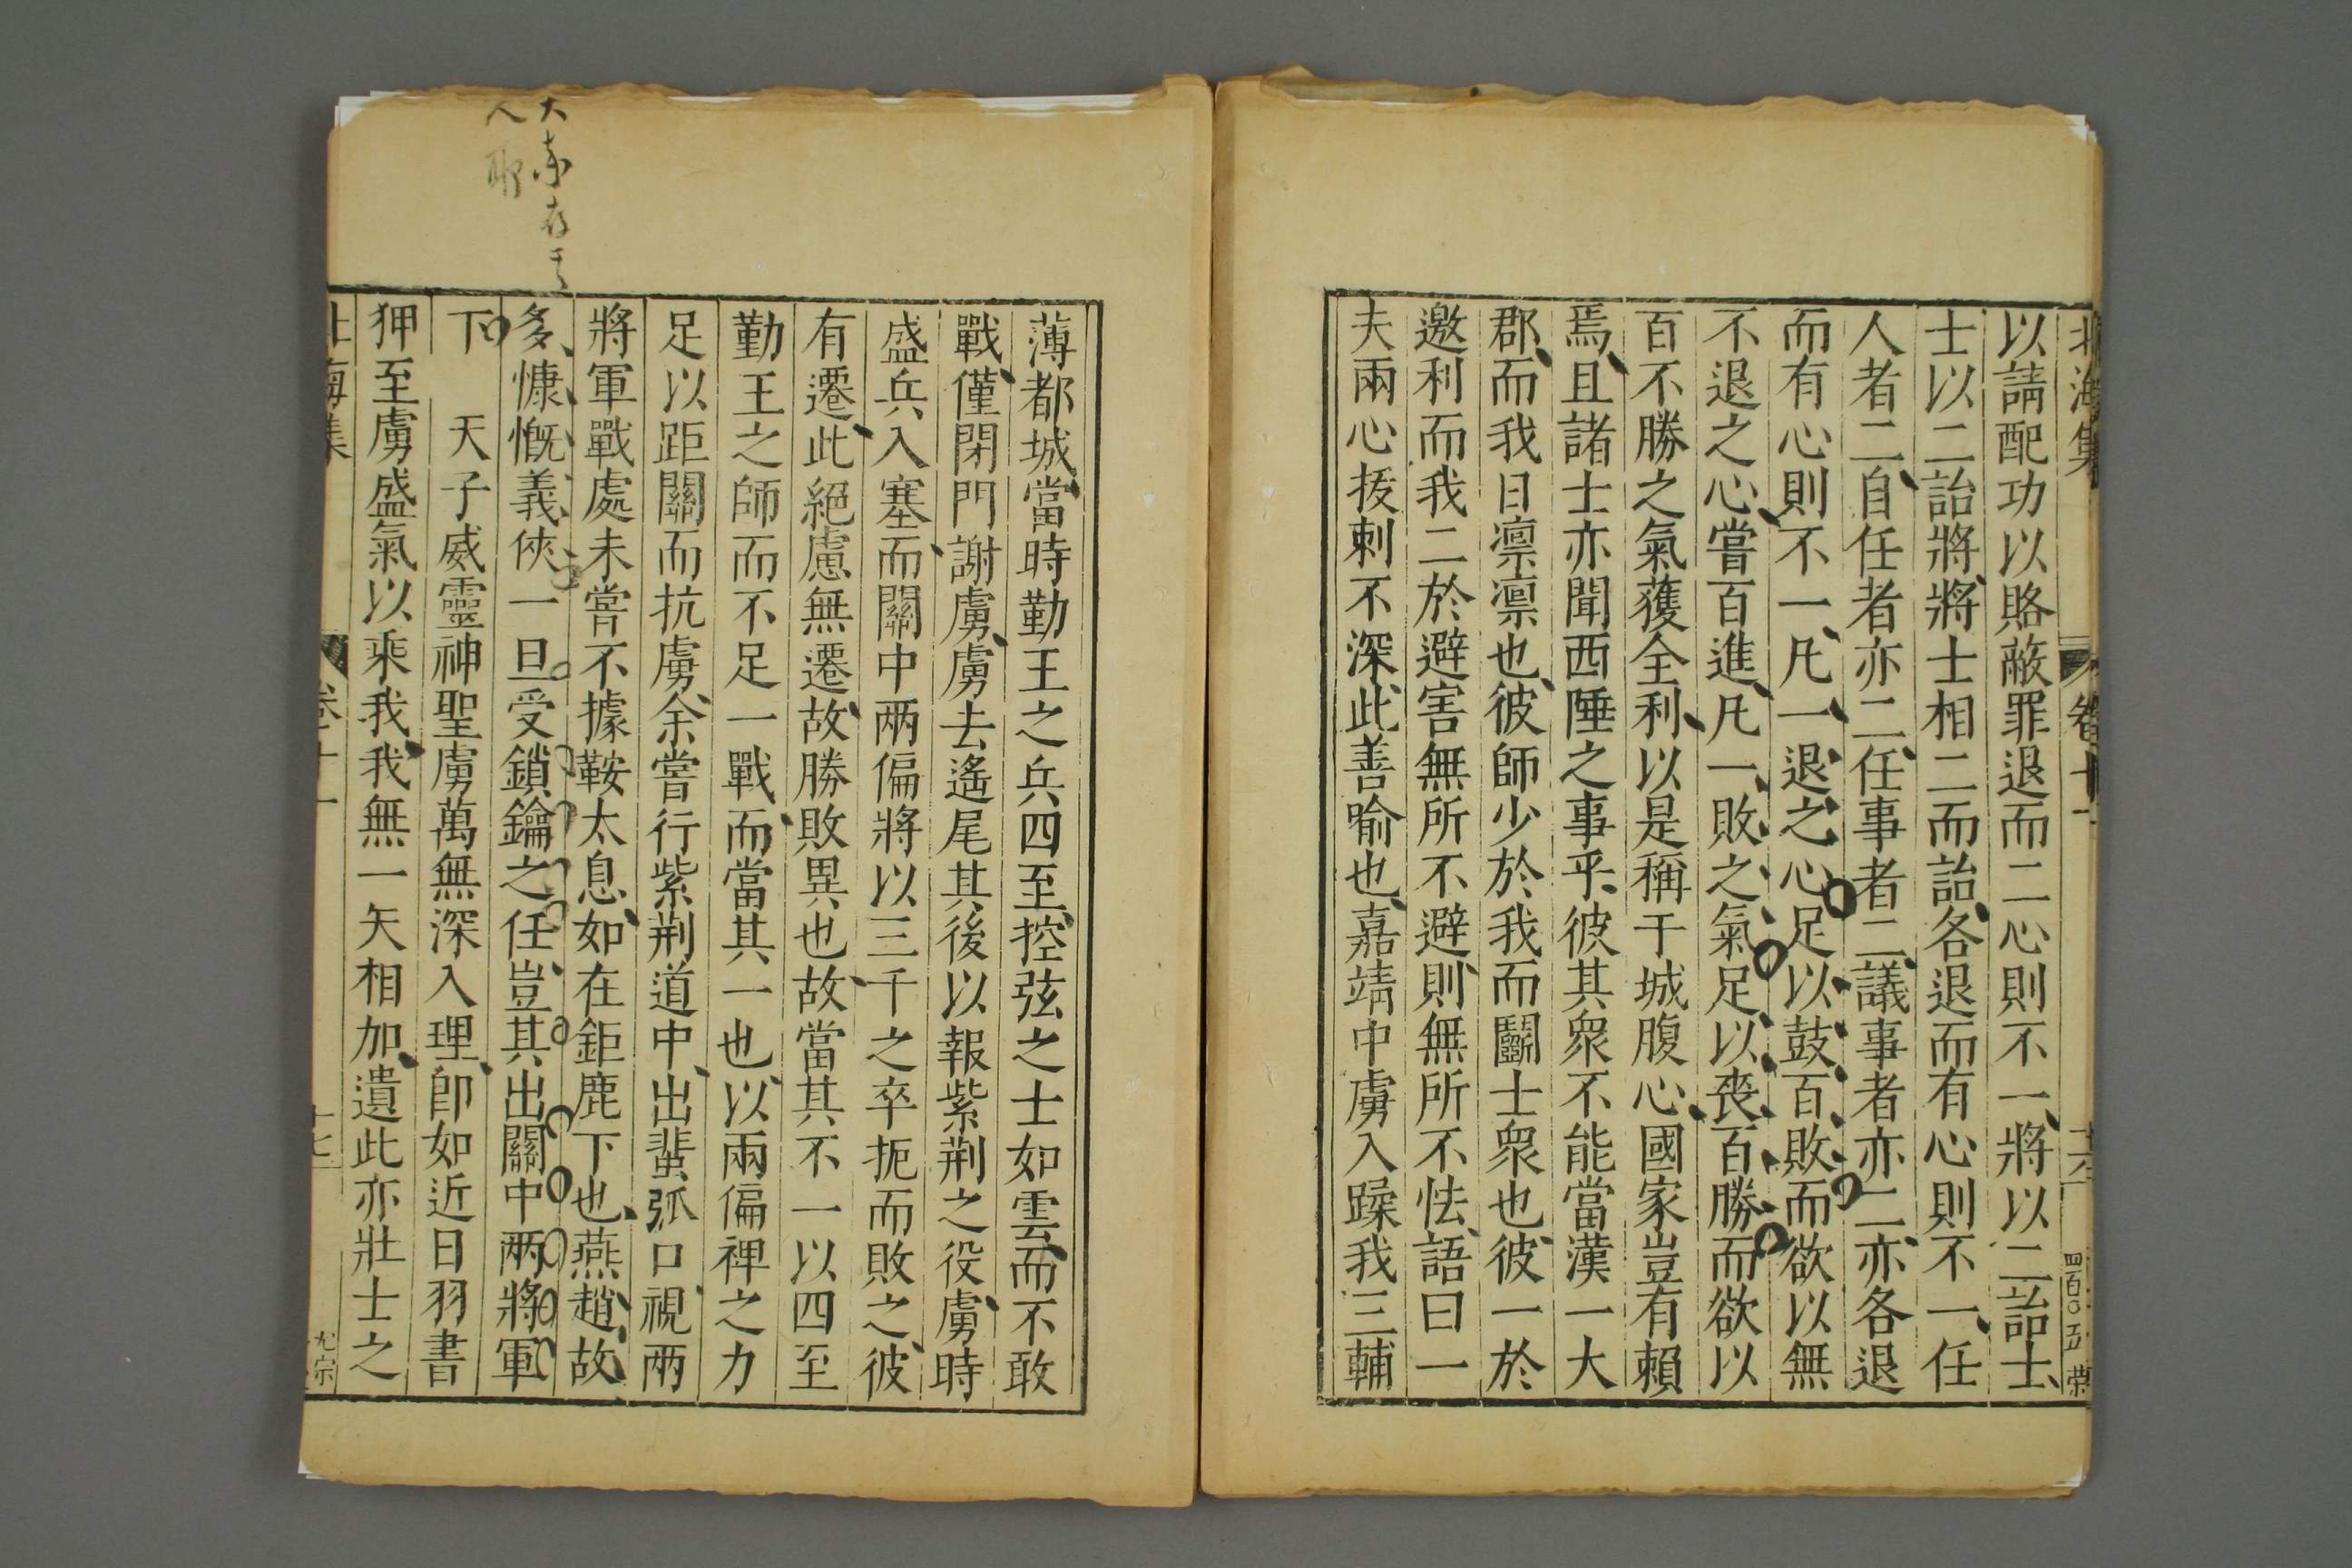 北海集
卷十一
十六
四百〇五 荣
以請配功以賂蔽罪退而二心則不一將以二詒士
士以二詒將將士相二而詒各退而有心則不一任
人者二自任者亦二任事者二議事者亦二亦各退
而有心則不一凡一退之心足以鼓百敗而欲以無
不退之心嘗百進凡一敗之氣足以喪百勝而欲以
百不勝之氣獲全利以是稱干城腹心國家豈有賴
焉且諸士亦聞西陲之事乎彼其衆不能當漢一大
郡而我日凛凛也彼師少於我而鬬士衆也彼一於
邀利而我二於避害無所不避則無所不怯語曰一
夫兩心拔刺不深此善喻也嘉靖中虜入躁我三輔
薄都城當時勤王之兵四至控弦之士如雲而不敢
戰僅閉門謝虜虜去遙尾其後以報紫荆之役虜時
盛兵入塞而關中兩偏將以三千之卒扼而敗之彼
有遷此絕慮無遷故勝敗異也故當其不一以四至
勤王之師而不足一戰而當其一也以兩偏裨之力
足以距關而抗虜余嘗行紫荆道中出蜚弧口視兩
將軍戰處未嘗不據鞍太息如在鉅鹿下也燕趙故
多慷慨義俠一旦受鎖鑰之任豈其出關中兩將軍
下 天子威靈神聖虜萬無深入理卽如近日羽書
狎至虜盛氣以乘我我無一矢相加遺此亦壯士之
北海集
卷十一
十七
尤宗